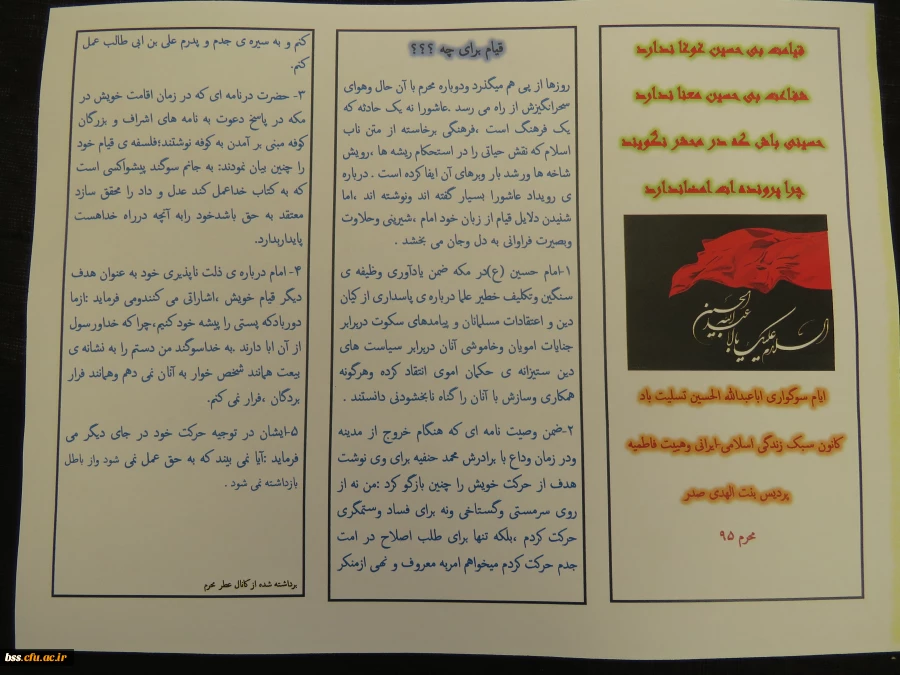 قیامت بی حسین غوغا ندارد
شفاعت بی حسین معنا ندارد
حسینی باش که در محشر نگویند
چرا پرونده ات امضاندارد
السلام علیک یا ابا عبدالله الحسین
ایام سوگواری اباعبدالله الحسین تسلیت باد
کانون سبک زندگی اسلامی-ایرانی وهییت فاطمیه
پردیس بنت الهدی صدر
محرم ۹۵
قیام برای چه ؟؟؟
روزها از پی هم میگذرد ودوباره محرم با آن حال وهوای
سحرانگیزش از راه می رسد .عاشورا نه یک حادثه که
یک فرهنگ است ،فرهنگی برخاسته از متن ناب
اسلام که نقش حیاتی را در استحکام ریشه ها ،رویش
شاخه ها ورشد بار وبرهای آن ایفا کرده است . درباره
ی رویداد عاشورا بسیار گفته اند ونوشته اند ،اما
شنیدن دلایل قیام از زبان خود امام ،شیرینی وحلاوت
وبصیرت فراوانی به دل وجان می بخشد .
۱-امام حسین (ع)در مکه ضمن یادآوری وظیفه ی
سنگین وتکلیف خطیر علما درباره ی پاسداری از کیان
دین و اعتقادات مسلمانان و پیامدهای سکوت دربرابر
جنایات امویان وخاموشی آنان دربرابر سیاست های
دین ستیزانه ی حکمان اموی انتقاد کرده وهرگونه
همکاری وسازش با آنان را گناه نابخشودنی دانستند .
۲-ضمن وصیت نامه ای که هنگام خروج از مدینه
ودر زمان وداع با برادرش محمد حنفیه برای وی نوشت
هدف از حرکت خویش را چنین بازگو کرد :من نه از
روی سرمستی وگستاخی ونه برای فساد وستمگری
حرکت کردم ،بلکه تنها برای طلب اصلاح در امت
جدم حرکت کردم میخواهم امربه معروف و نهی ازمنکر
کنم و به سیره ی جدم و پدرم علی بن ابی طالب عمل
کنم.
۳- حضرت درنامه ای که در زمان اقامت خویش در
مکه در پاسخ دعوت به نامه های اشراف و بزرگان
کوفه مبنی بر آمدن به کوفه نوشتند؛فلسفه ی قیام خود
را چنین بیان نمودند: به جانم سوگند پیشواکسی است
که به کتاب خداعمل کند عدل و داد را محقق سازد
معتقد به حق باشدخود رابه آنچه درراه خداهست
پایداربدارد.
۴- امام درباره ی ذلت ناپذیری خود به عنوان هدف
دیگر قیام خویش ،اشاراتی می کنندومی فرماید :ازما
دوربادکه پستی را پیشه خود کنیم،چرا که خداورسول
از آن ابا دارند .به خداسوگند من دستم را به نشانه ی
بیعت همانند شخص خوار به آنان نمی دهم وهمانند فرار
بردگان ،فرار نمی کنم.
۵-ایشان در توجیه حرکت خود در جای دیگر می
فرماید :آیا نمی بینند که به حق عمل نمی شود واز باطل
بازداشته نمی شود .
برداشته شده از کانال عطر محرم
bss.cfu.ac.ir